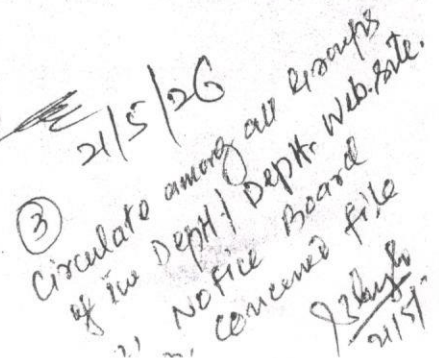 21/5/26
③
Circulate among all Groups
of the Deptt./ Deptt. Web.site.
Notice Board
concerned file
21/5/